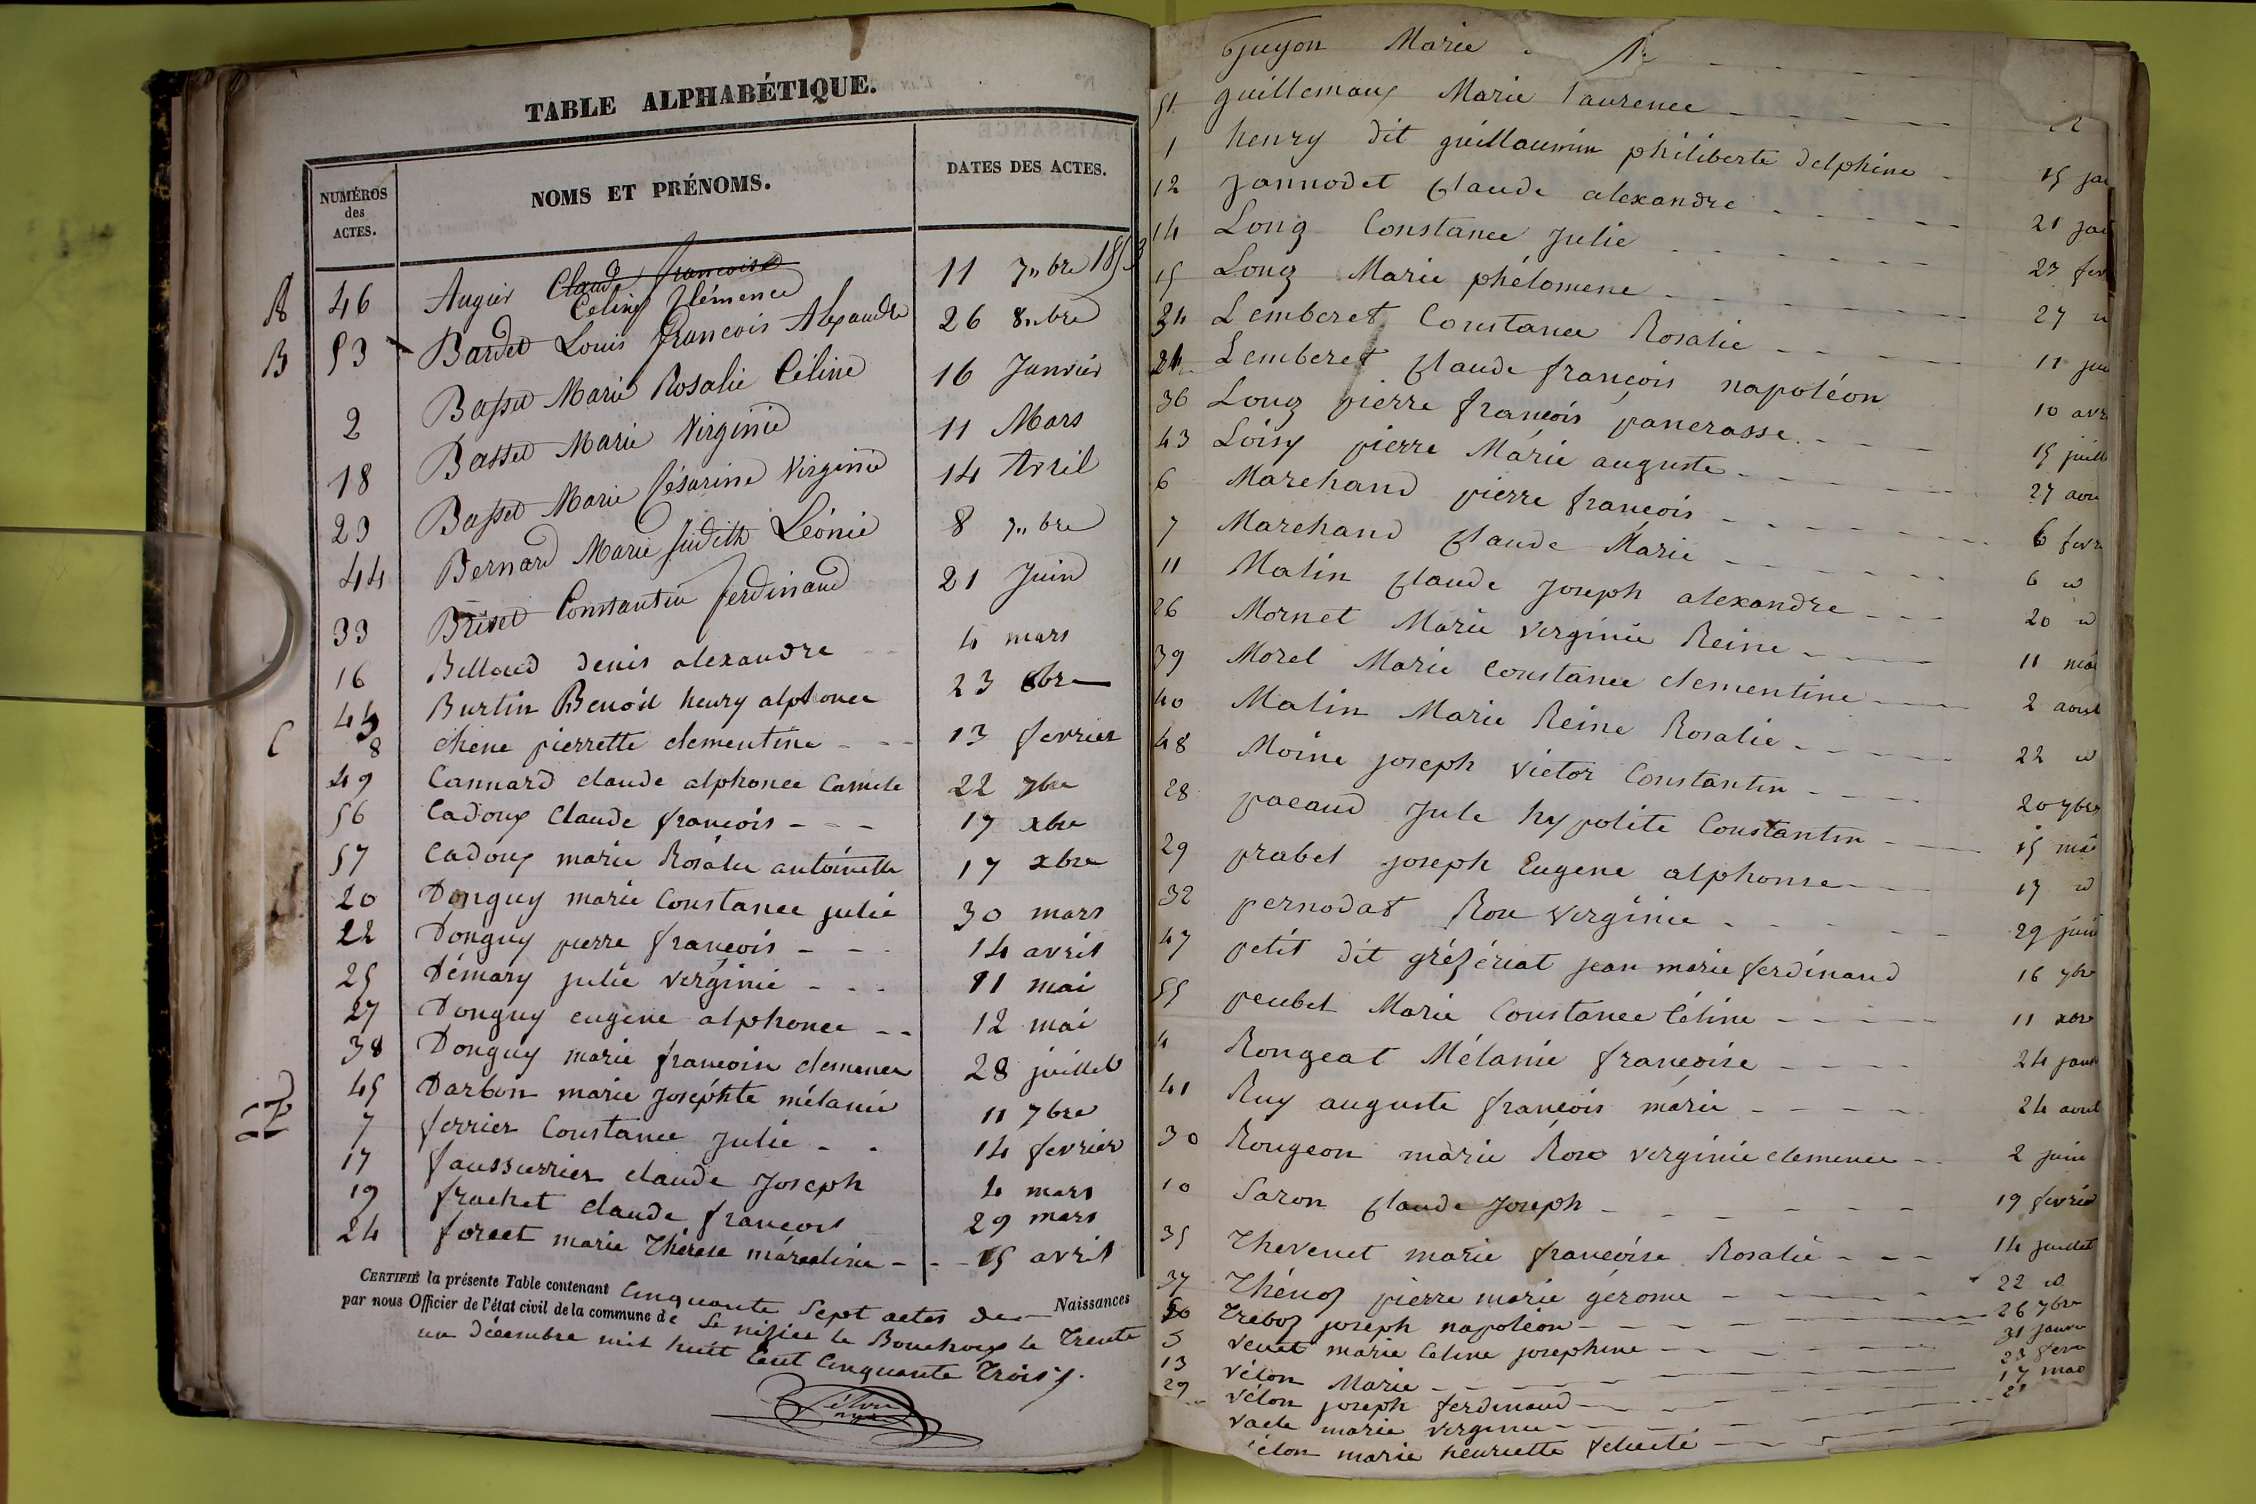 TABLE ALPHABÉTIQUE.
NUMÉROS des ACTES. NOMS ET PRÉNOMS. DATES DES ACTES.
A 46 Augier Claude francoise 11 7bre 1853
Celine Clémence
B 53 Bardet Louis françois Alexandre 26 8bre
2 Basset Marie Rosalie Celine 16 Janvier
18 Basset Marie Virginie 11 Mars
23 Basset Marie Césarine Virginie 14 Avril
44 Bernard Marie Judith Léonie 8 7bre
33 Briset Constantin ferdinand 21 Juin
16 Billaud denis alexandre 4 mars
Burtin Benoit henry alphonce 23 8bre
C 8 chene pierrette clementine 13 fevrier
49 Cannard claude alphonce Camile 22 7bre
56 Cadoux Claude françois 17 xbre
57 Cadoux marie Rosalie antoinette 17 xbre
20 Donguy marie Constance julie 30 mars
22 Donguy pierre françois 14 avril
25 Démary julie virginie 11 mai
27 Donguy eugene alphonce 12 mai
38 Donguy marie francoise clemence 28 juillet
45 Darbon marie Joséphte mélanie 11 7bre
7 ferrier Constance Julie 14 fevrier
17 faussurrier claude Joseph 4 mars
19 frachet claude françois 29 mars
24 foreet marie Thérese márceline 15 avril
CERTIFIÉ la présente Table contenant Cinquante Sept actes de Naissances
par nous Officier de l'état civil de la commune de le Bouchoux le Trente
un décembre mil huit Cent Cinquante Trois
Guyon Marie
51 guillemaux Marie Laurence
1 henry dit guillaumin philiberte delphine 15 jan
12 Jannodet Claude alexandre 21 jan
14 Long Constance Julie 23 fev
15 Long Marie phélomene 27
34 Lemberet Constance Rosalie 11 jui
Lemberet Claude françois napoléon 10 avr
36 Long pierre françois pancrasse 15 juill
43 Loisy pierre Marie auguste 27 aou
6 Marchand pierre françois 6 fevr
7 Marchand Claude Marie 6 id
11 Malin Claude Joseph alexandre 20 id
26 Mornet Marie Virginie Reine 11 mai
39 Morel Marie Constance clementine 2 aoust
40 Malin Marie Reine Rosalie 22 id
48 Moine joseph Victor Constantin 20 7bre
28 pacaud Jule hypolite Constantin 15 mai
29 prabel joseph Eugene alphonse 17 id
32 pernodat Rose virginie 29 juin
47 petit dit grézériat jean marie ferdinand 16 7bre
55 peubet Marie Constance Céline 11 xbre
4 Rongeat Mélanie françoise 24 janv
41 Ruy auguste françois marie 24 aout
30 Rougeon marie Rose virginie clemence 2 juin
10 Saron Claude Joseph 19 fevrier
35 Thevenet marie françoise Rosalie 14 juillet
37 Thénoz pierre marie gérome 22 id
50 Treboz joseph napoléon 26 7bre
5 Venet marie Celine josephine 31 janv
13 vélon Marie 23 fevr
29 vélon joseph ferdinand 17 mai
marie virginie 21
marie henriette felicite